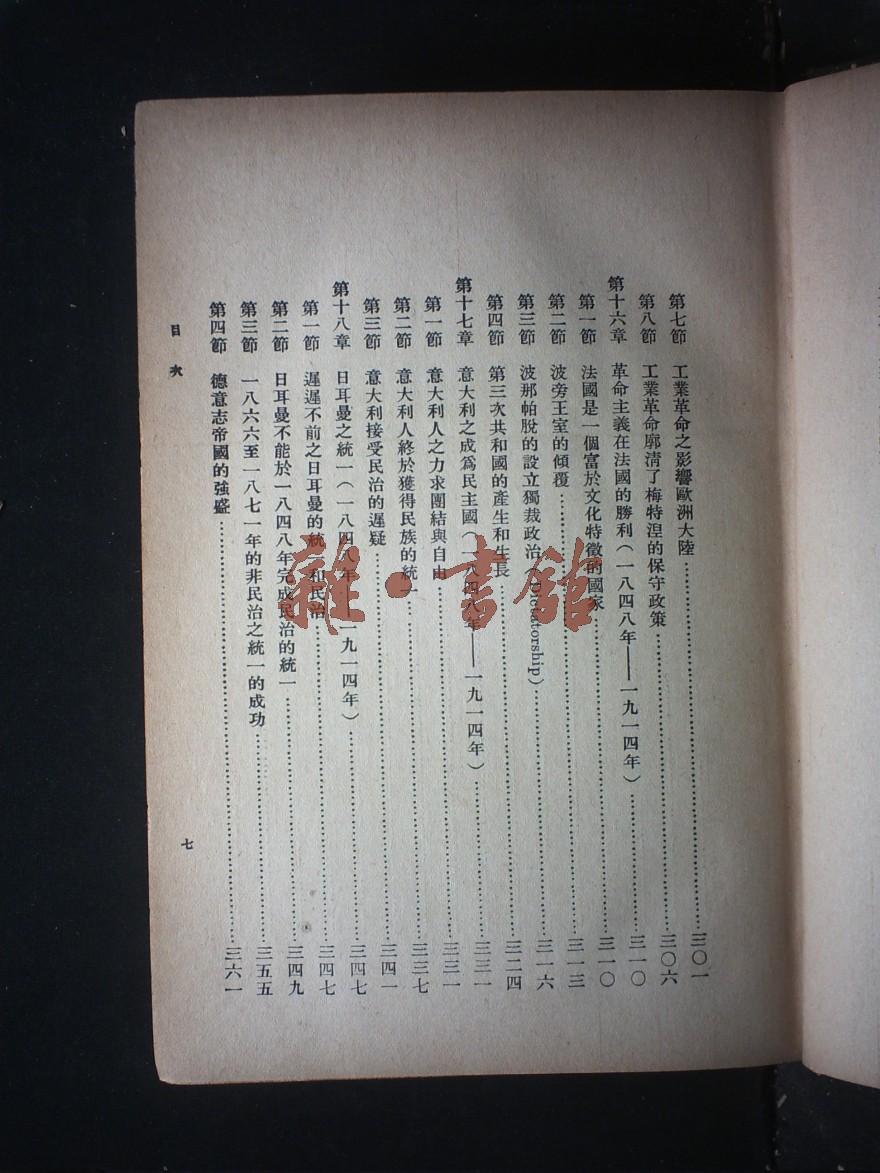 第七節 工業革命之影響歐洲大陸……三〇一
第八節 工業革命廓清了梅特涅的保守政策……三〇六
第十六章 革命主義在法國的勝利(一八四八年——一九一四年)……三一〇
第一節 法國是一個富於文化特徵的國家……三一〇
第二節 波旁王室的傾覆……三一三
第三節 波那帕脫的設立獨裁政治(Dictatorship)……三一六
第四節 第三次共和國的產生和生長……三二四
第十七章 意大利之成爲民主國(一八四八年——一九一四年)……三三一
第一節 意大利人之力求團結與自由……三三一
第二節 意大利人終於獲得民族的統一……三三七
第三節 意大利接受民治的遲疑……三四一
第十八章 日耳曼之統一(一八四八年——一九一四年)……三四七
第一節 遲遲不前之日耳曼的統一和民治……三四七
第二節 日耳曼不能於一八四八年完成民治的統一……三四九
第三節 一八六六至一八七一年的非民治之統一的成功……三五五
第四節 德意志帝國的強盛……三六一
目次
七
雜·書館